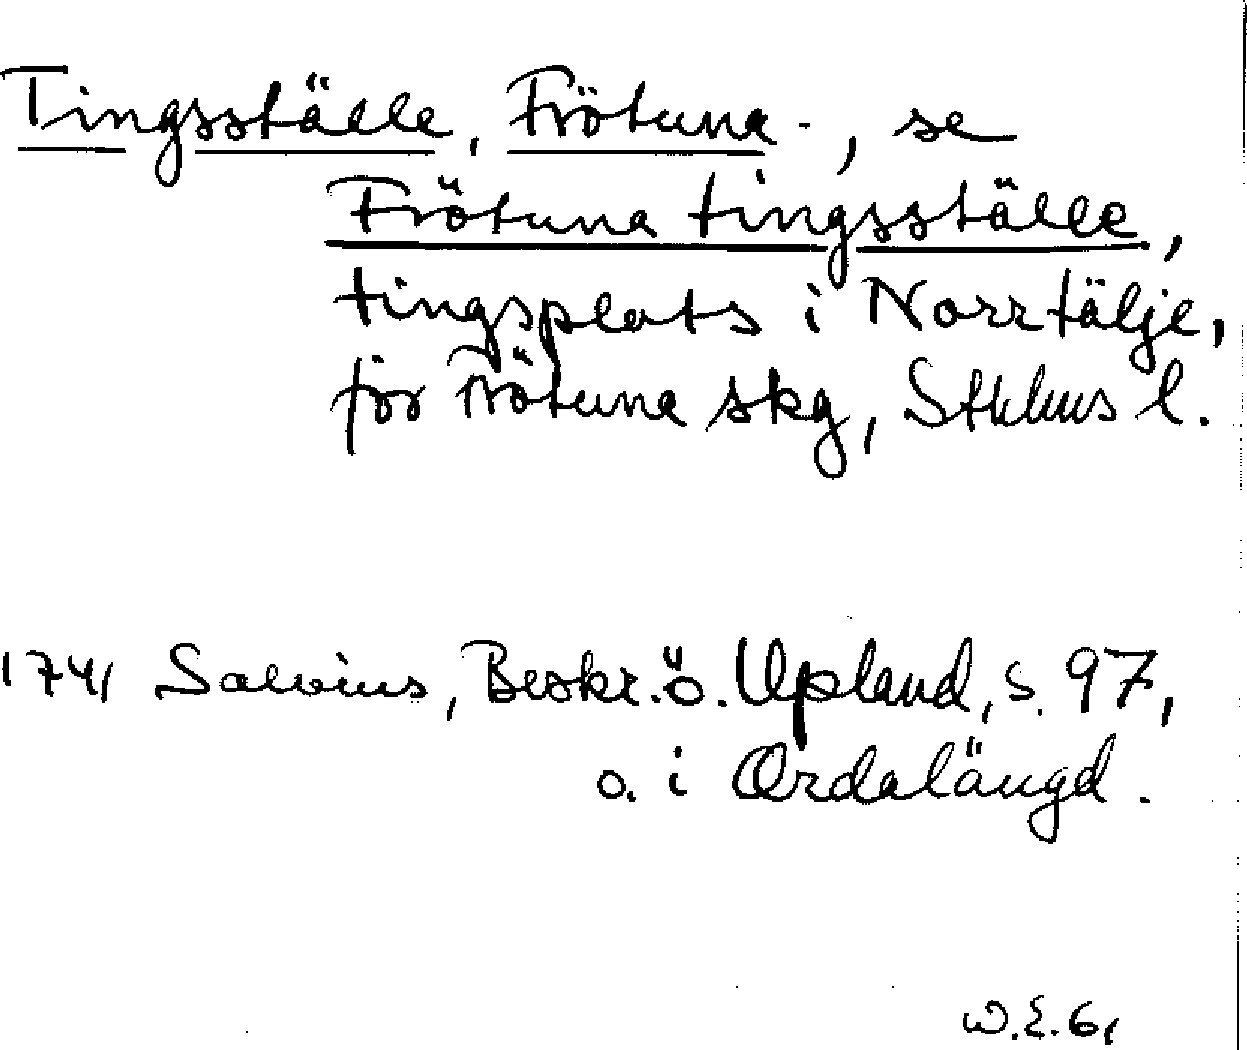 Tingsställe, Frötuna -, se
Frötuna tingsställe,
tingsplats i Norrtälje,
för Frötuna skg, Sthlms l.
1741 Salvius, Beskr. ö. Upland, s. 97,
o. i Ordalängd.
W.E. 61